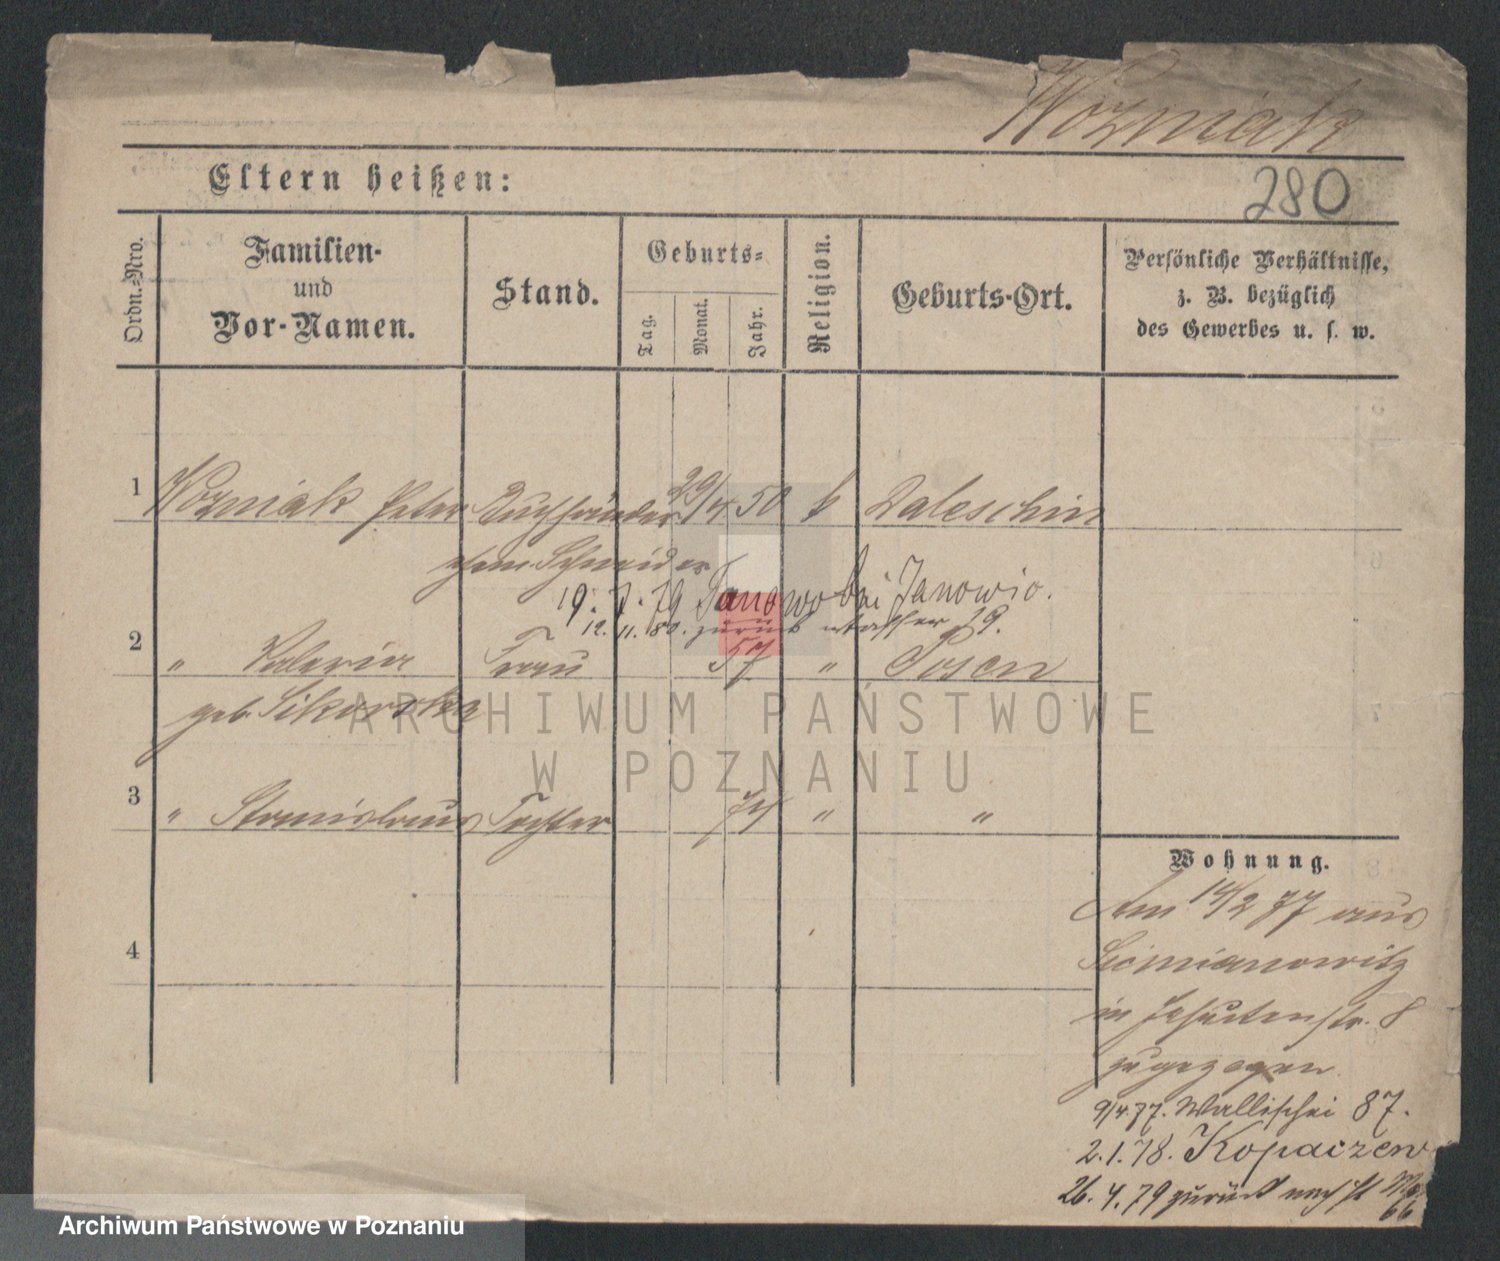 Wozniak
Eltern heißen:
280
Ordn.-Nro.
Familien-
und
Vor-Namen.
Stand.
Geburts-
Tag.
Monat.
Jahr.
Religion.
Geburts-Ort.
Persönliche Verhältnisse,
z. B. bezüglich
des Gewerbes u. s. w.
1 Wozniak Peter 29/4 50 k Zaleschin
Schneider
19. 7. 79 Janowo bei Janowio.
12. 11. 80. zurück 19.
2 " Valeria Frau 57 " Posen
geb. Sikorska
ARCHIWUM PAŃSTWOWE
W POZNANIU
3 " Stanislaus Tochter " "
Wohnung.
Am 14/2 77 aus
in Jesuitenstr. 8
zugezogen
4
9/4.77. Wallischei 87.
2.1.78. Kopaczew
26.4.79 zurück nach
66
Archiwum Państwowe w Poznaniu